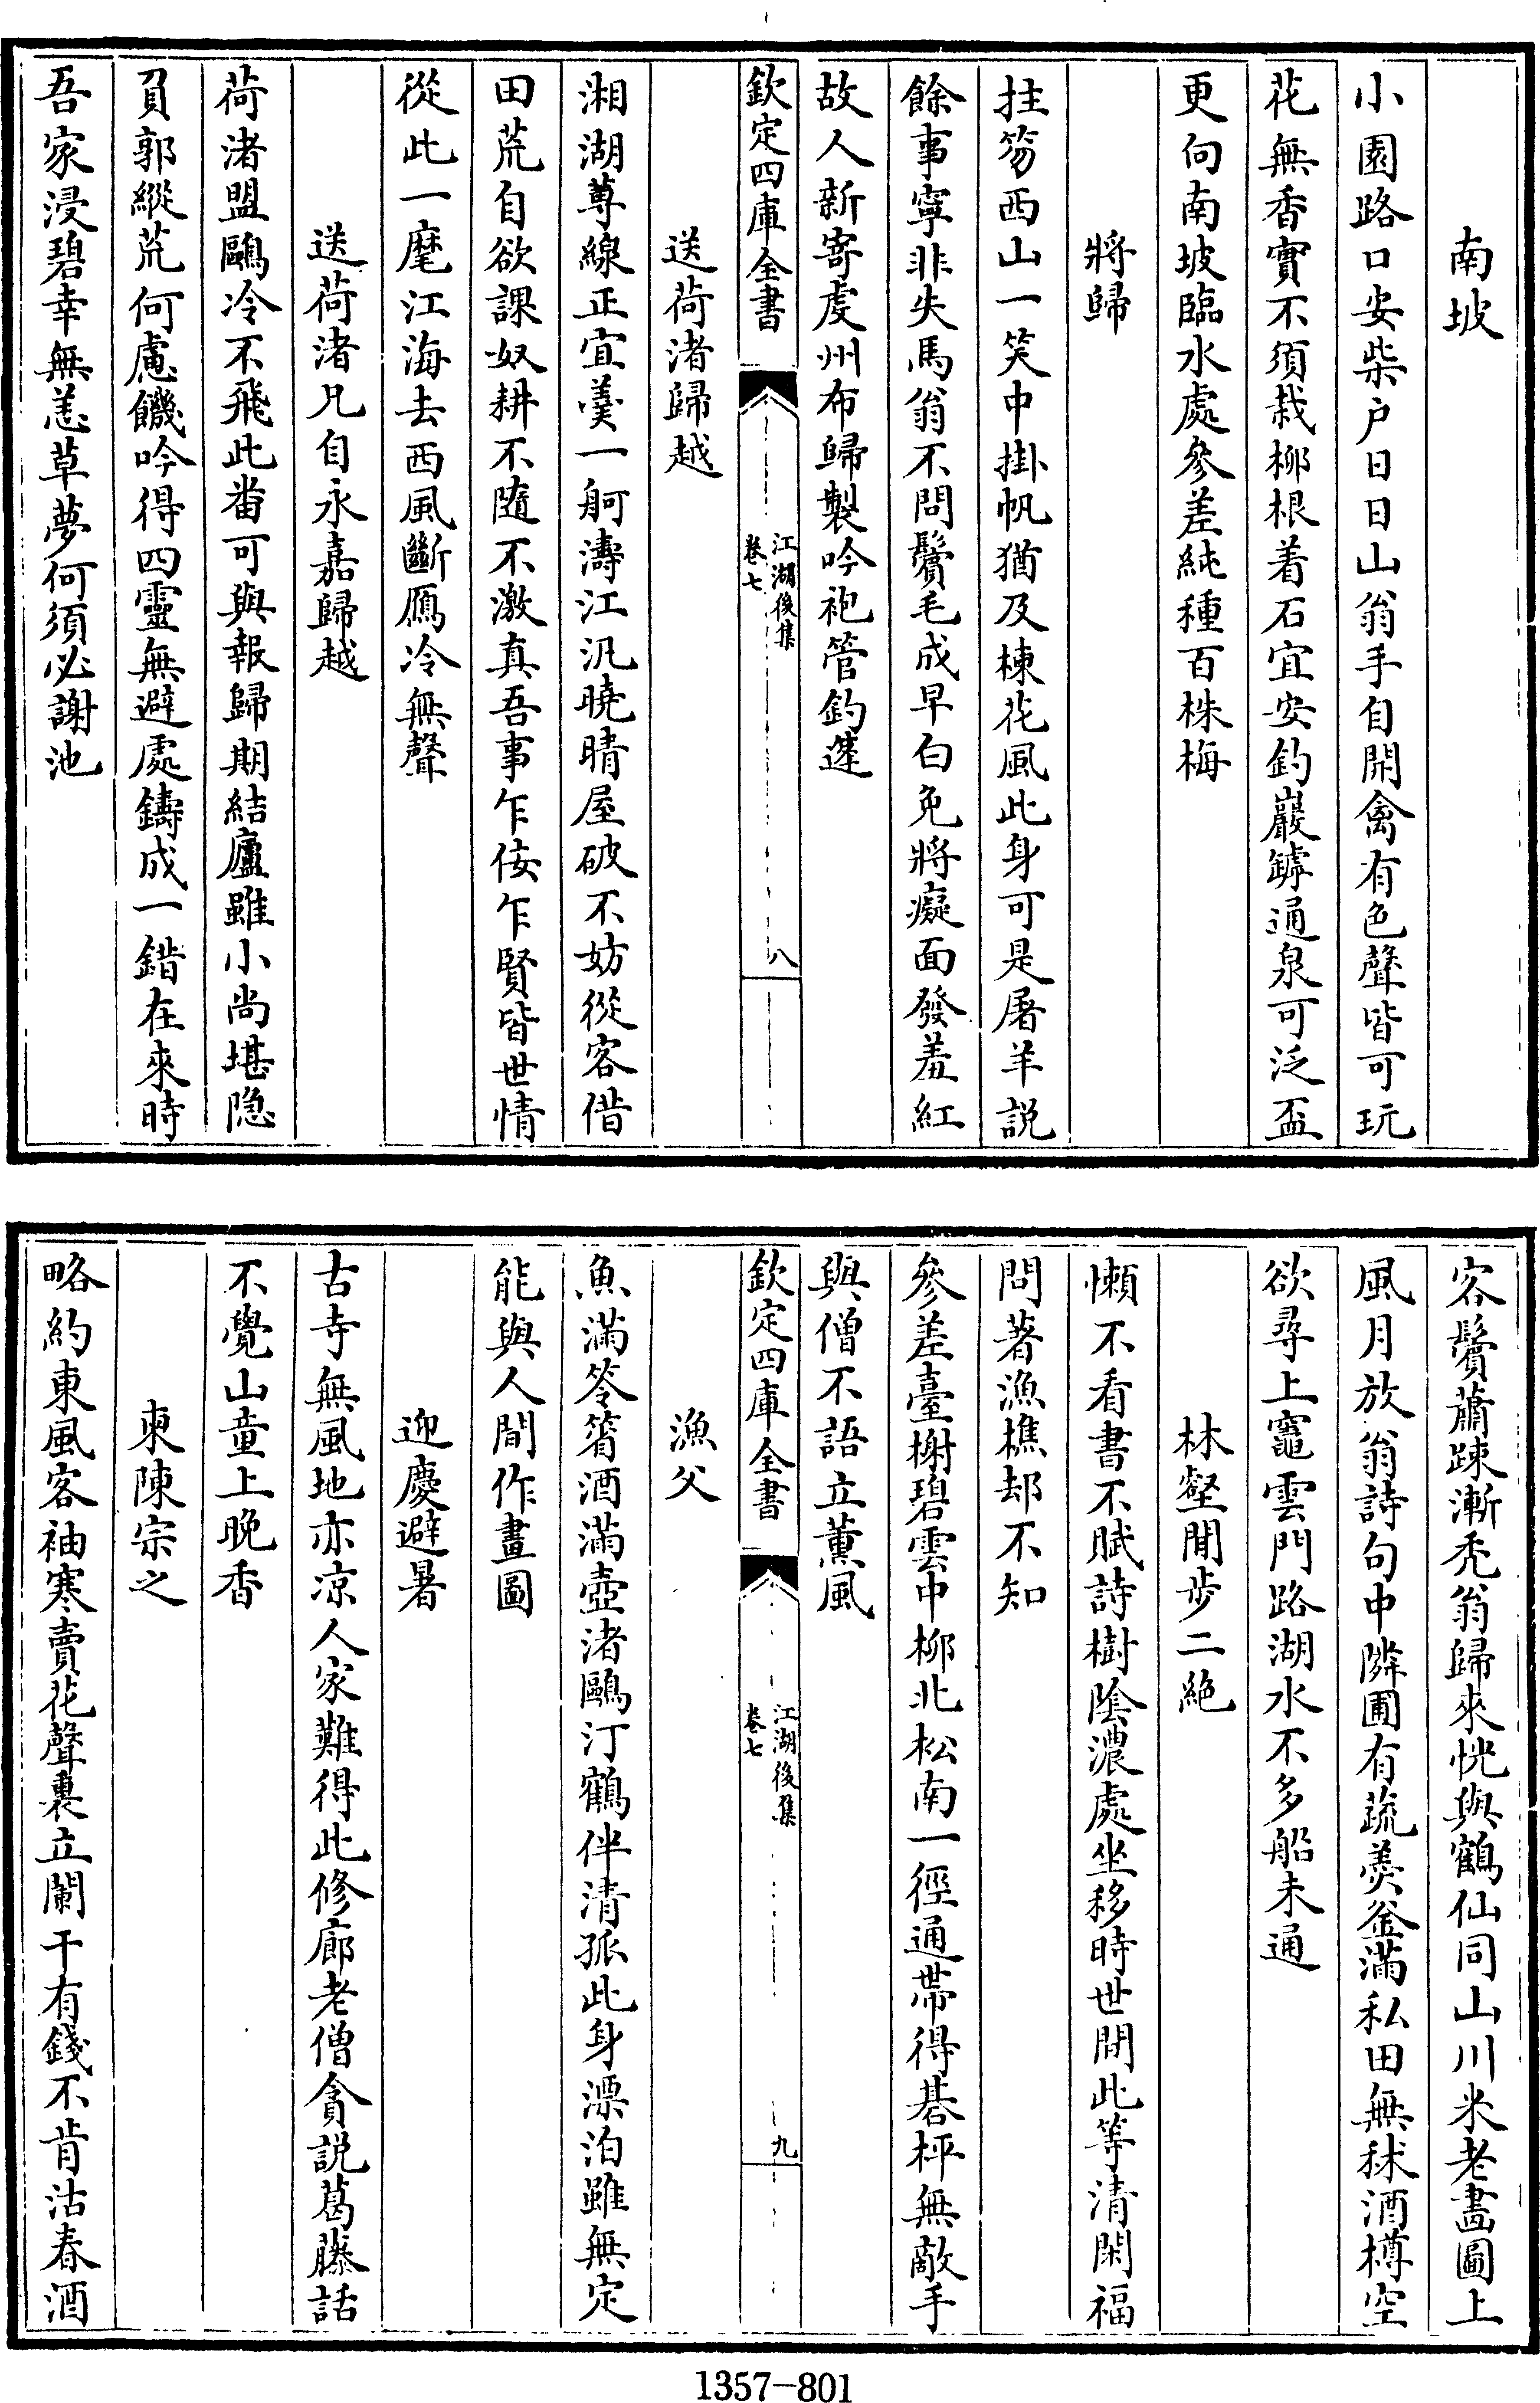 南坡
小園路口安柴戶日日山翁手自開禽有色聲皆可玩
花無香實不須栽柳根着石宜安釣巖罅通泉可泛盃
更向南坡臨水處參差純種百株梅
將歸
拄笏西山一笑中掛帆猶及楝花風此身可是屠羊説
餘事寧非失馬翁不問鬢毛成早白免將癡面發羞紅
故人新寄處州布歸製吟袍管釣蓬
欽定四庫全書
江湖後集
卷七
八
送荷渚歸越
湘湖蓴線正宜羹一舸濤江汎曉晴屋破不妨從客借
田荒自欲課奴耕不隨不激真吾事乍佞乍賢皆世情
從此一麾江海去西風斷鴈冷無聲
送荷渚兄自永嘉歸越
荷渚盟鷗冷不飛此畨可與報歸期結廬雖小尚堪隐
負郭縱荒何慮饑吟得四靈無避處鑄成一錯在來時
吾家浸碧幸無恙草夢何須必謝池
客鬢蕭踈漸禿翁歸來恍與鶴仙同山川米老畵圖上
風月放翁詩句中隣圃有蔬羮釜滿私田無秫酒樽空
欲尋上竈雲門路湖水不多船未通
林壑閒步二絶
懶不看書不賦詩樹陰濃處坐移時世間此等清閑福
問著漁樵却不知
參差臺榭碧雲中柳北松南一徑通帶得碁枰無敵手
與僧不語立薰風
欽定四庫全書
江湖後集
卷七
九
漁父
魚滿笭箵酒滿壺渚鷗汀鶴伴清孤此身漂泊雖無定
能與人間作畫圖
迎慶避暑
古寺無風地亦凉人家難得此修廊老僧貪説葛藤話
不覺山童上晚香
柬陳宗之
略約東風客袖寒賣花聲裏立闌干有錢不肯沽春酒
1357-801